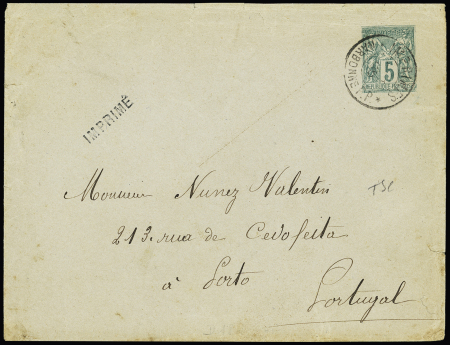 5
IMPRIMÉ
Monsieur Nunez Valentin
213. rua de Cedofeita
à Porto
Portugal